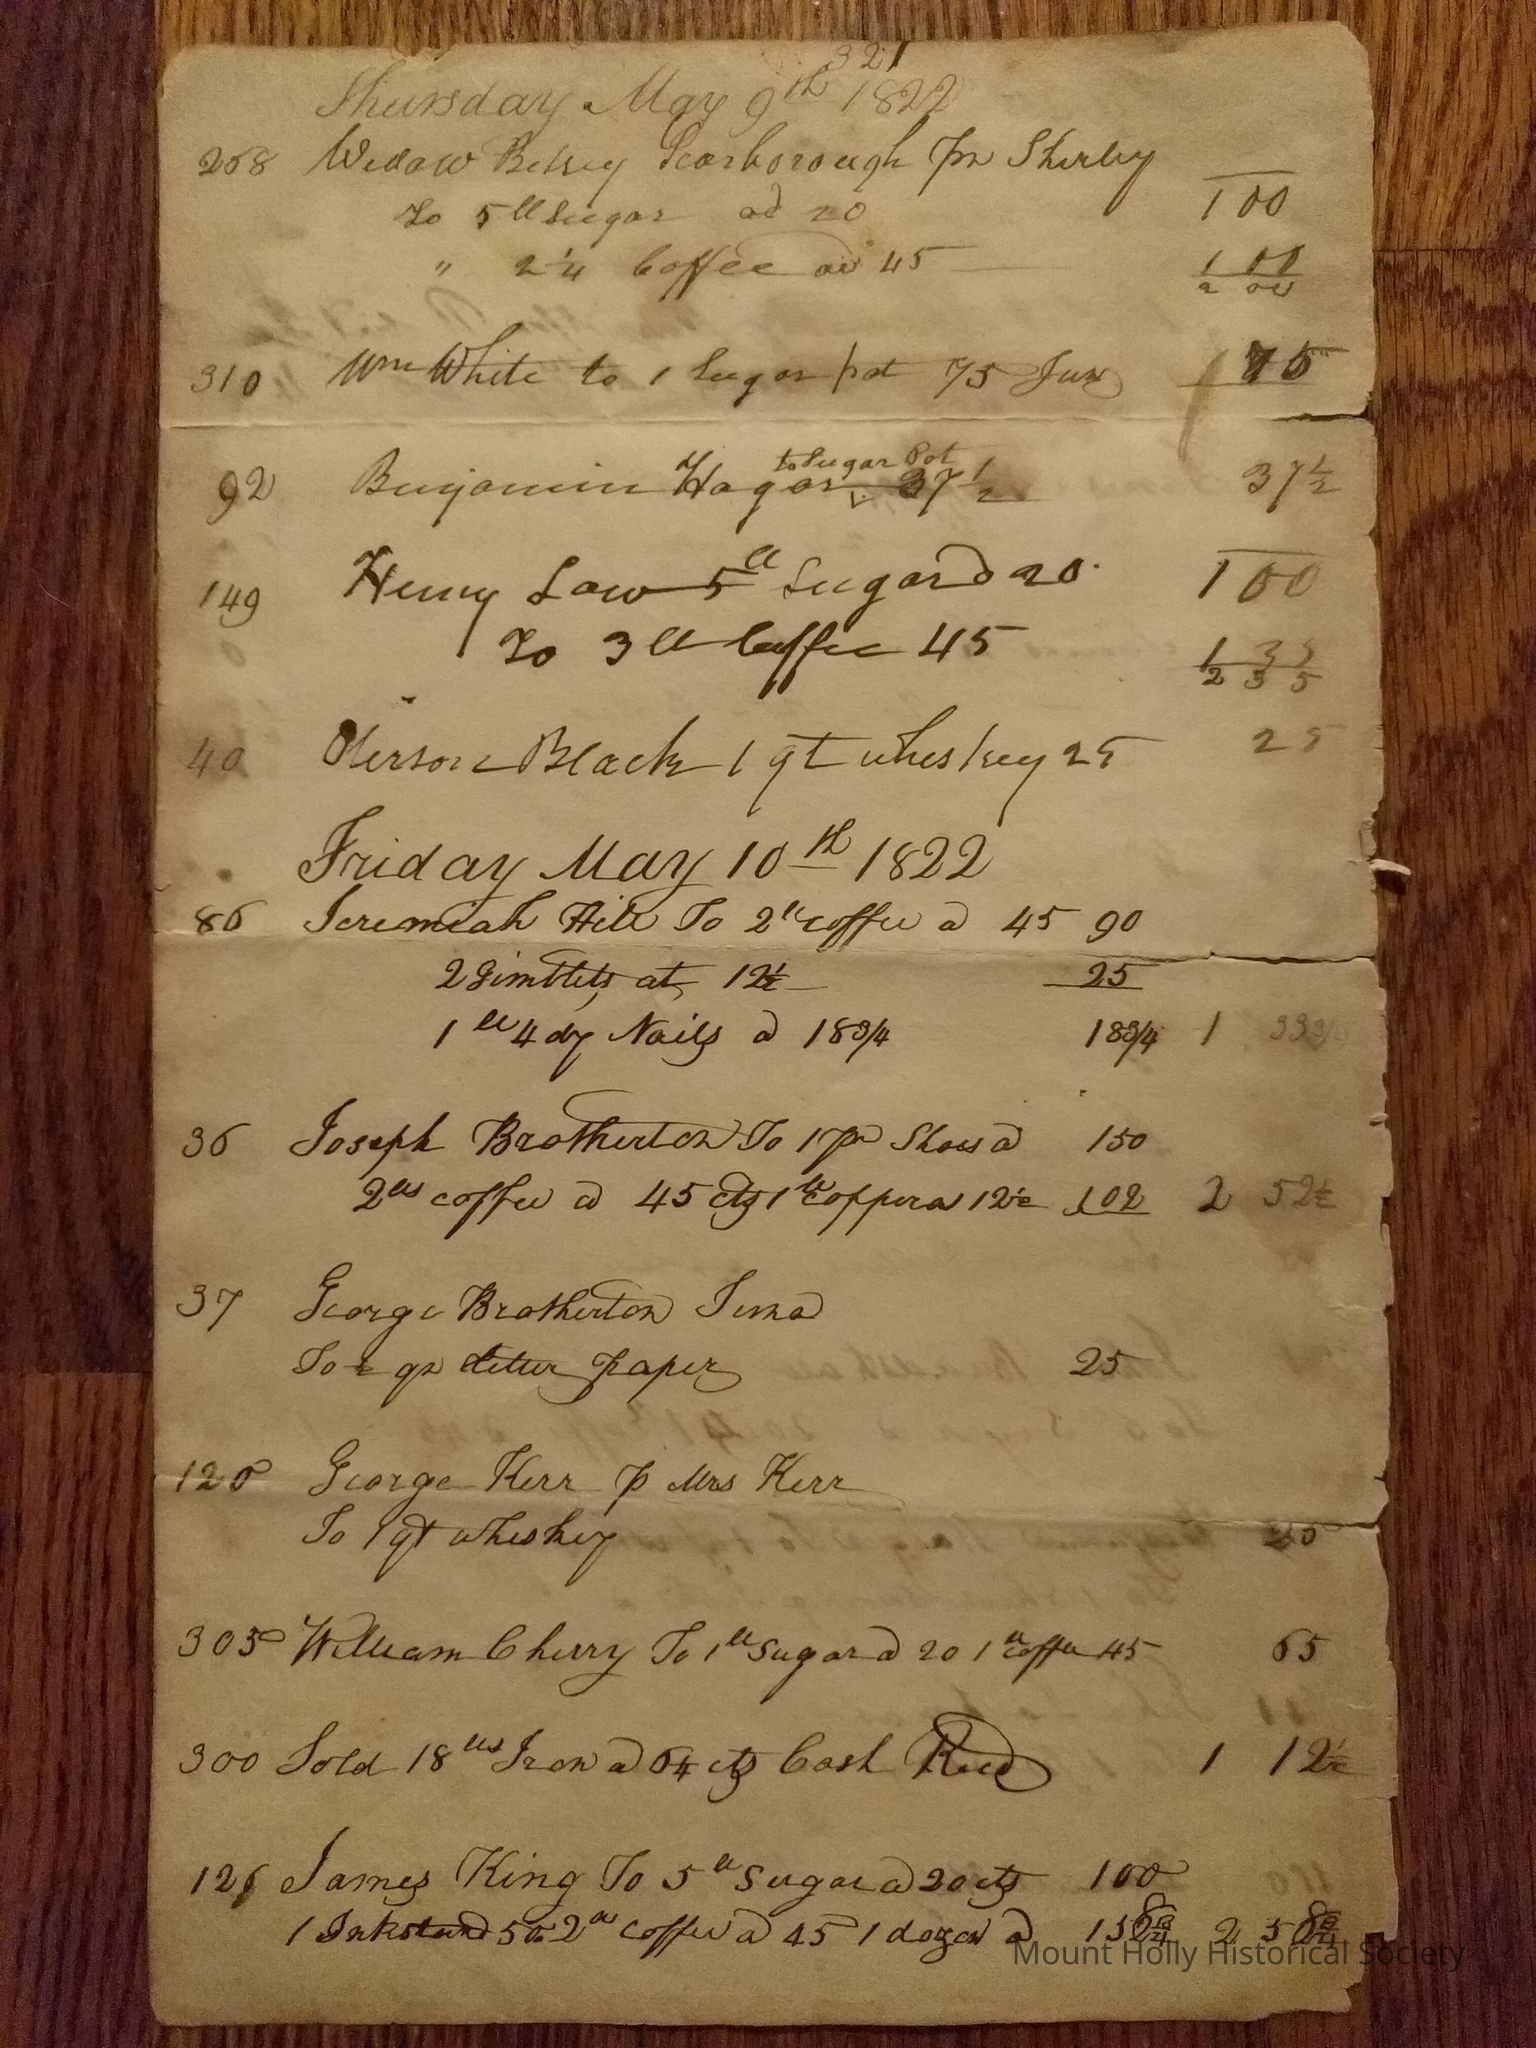 321
Thursday May 9th 1822
208 Widow Betsey Scarborough pr Shirley
To 5 ll Sugar ad 20 1 00
" 2 1/4 Coffee ad 45 1 00
2 00
310 Wm White to 1 Sugar pot 75 75
to Sugar Pot
92 Benjamin Hagar 37 1/2 37 1/2
149 Henry Law 5 ll Sugar a 20 1 00
To 3 ll Coffee 45 1 35
2 35
40 Black 1 qt whiskey 25 25
Friday May 10th 1822
86 Jeremiah Hill To 2 ll coffee a 45 90
2 Gimblets at 12 1/2 25
1 ll 4 dy Nails a 18 3/4 18 3/4 1 33 3/4
36 Joseph Brotherton To 1 pr Shoes a 150
2 lls coffee a 45 cts 1 ll copperas 12 1/2 102 2 52 1/2
37 George Brotherton
To qr letter paper 25
120 George Kerr p Mrs Kerr
To 1 qt whiskey 25
305 William Cherry To 1 ll Sugar a 20 1 ll coffee 45 65
300 Sold 18 lls Iron a 6 1/4 cts Cash Recd 1 12 1/2
126 James King To 5 ll Sugar a 20 cts 100
1 Inkstand 50 2 ll coffee a 45 1 dozen a 2 58
Mount Holly Historical Society